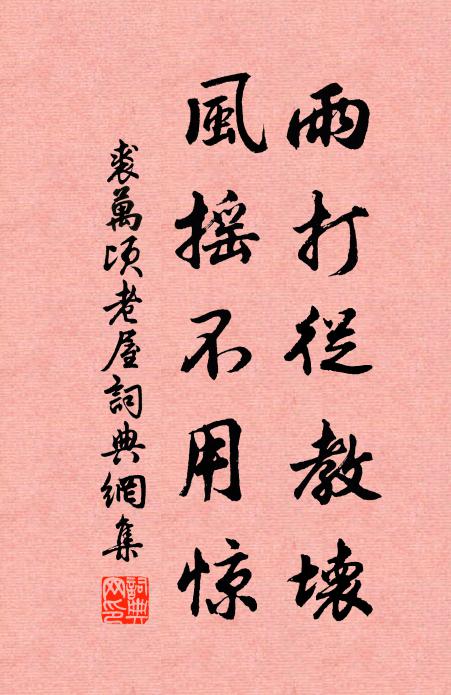 雨打從教壞
風摇不用惊
裘萬頃老屋詞典網集
詞典網印